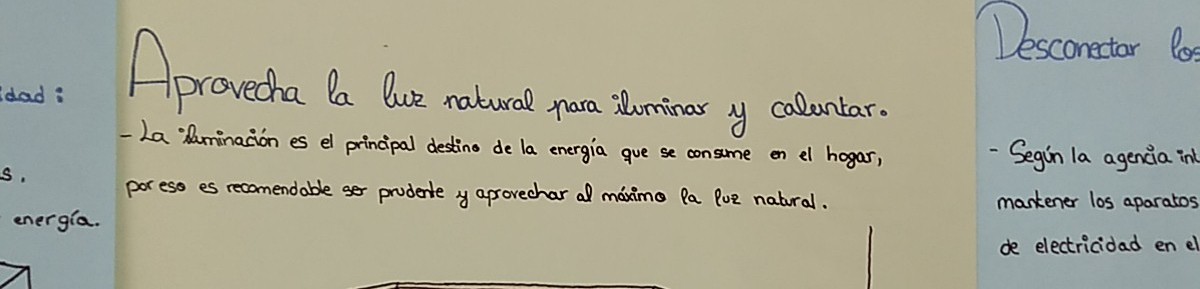 idad:
s.
energía.
Aprovecha la luz natural para iluminar y calentar.
- La iluminación es el principal destino de la energía que se consume en el hogar,
por eso es recomendable ser prudente y aprovechar al máximo la luz natural.
Desconectar los
- Según la agencia int
mantener los aparatos
de electricidad en el